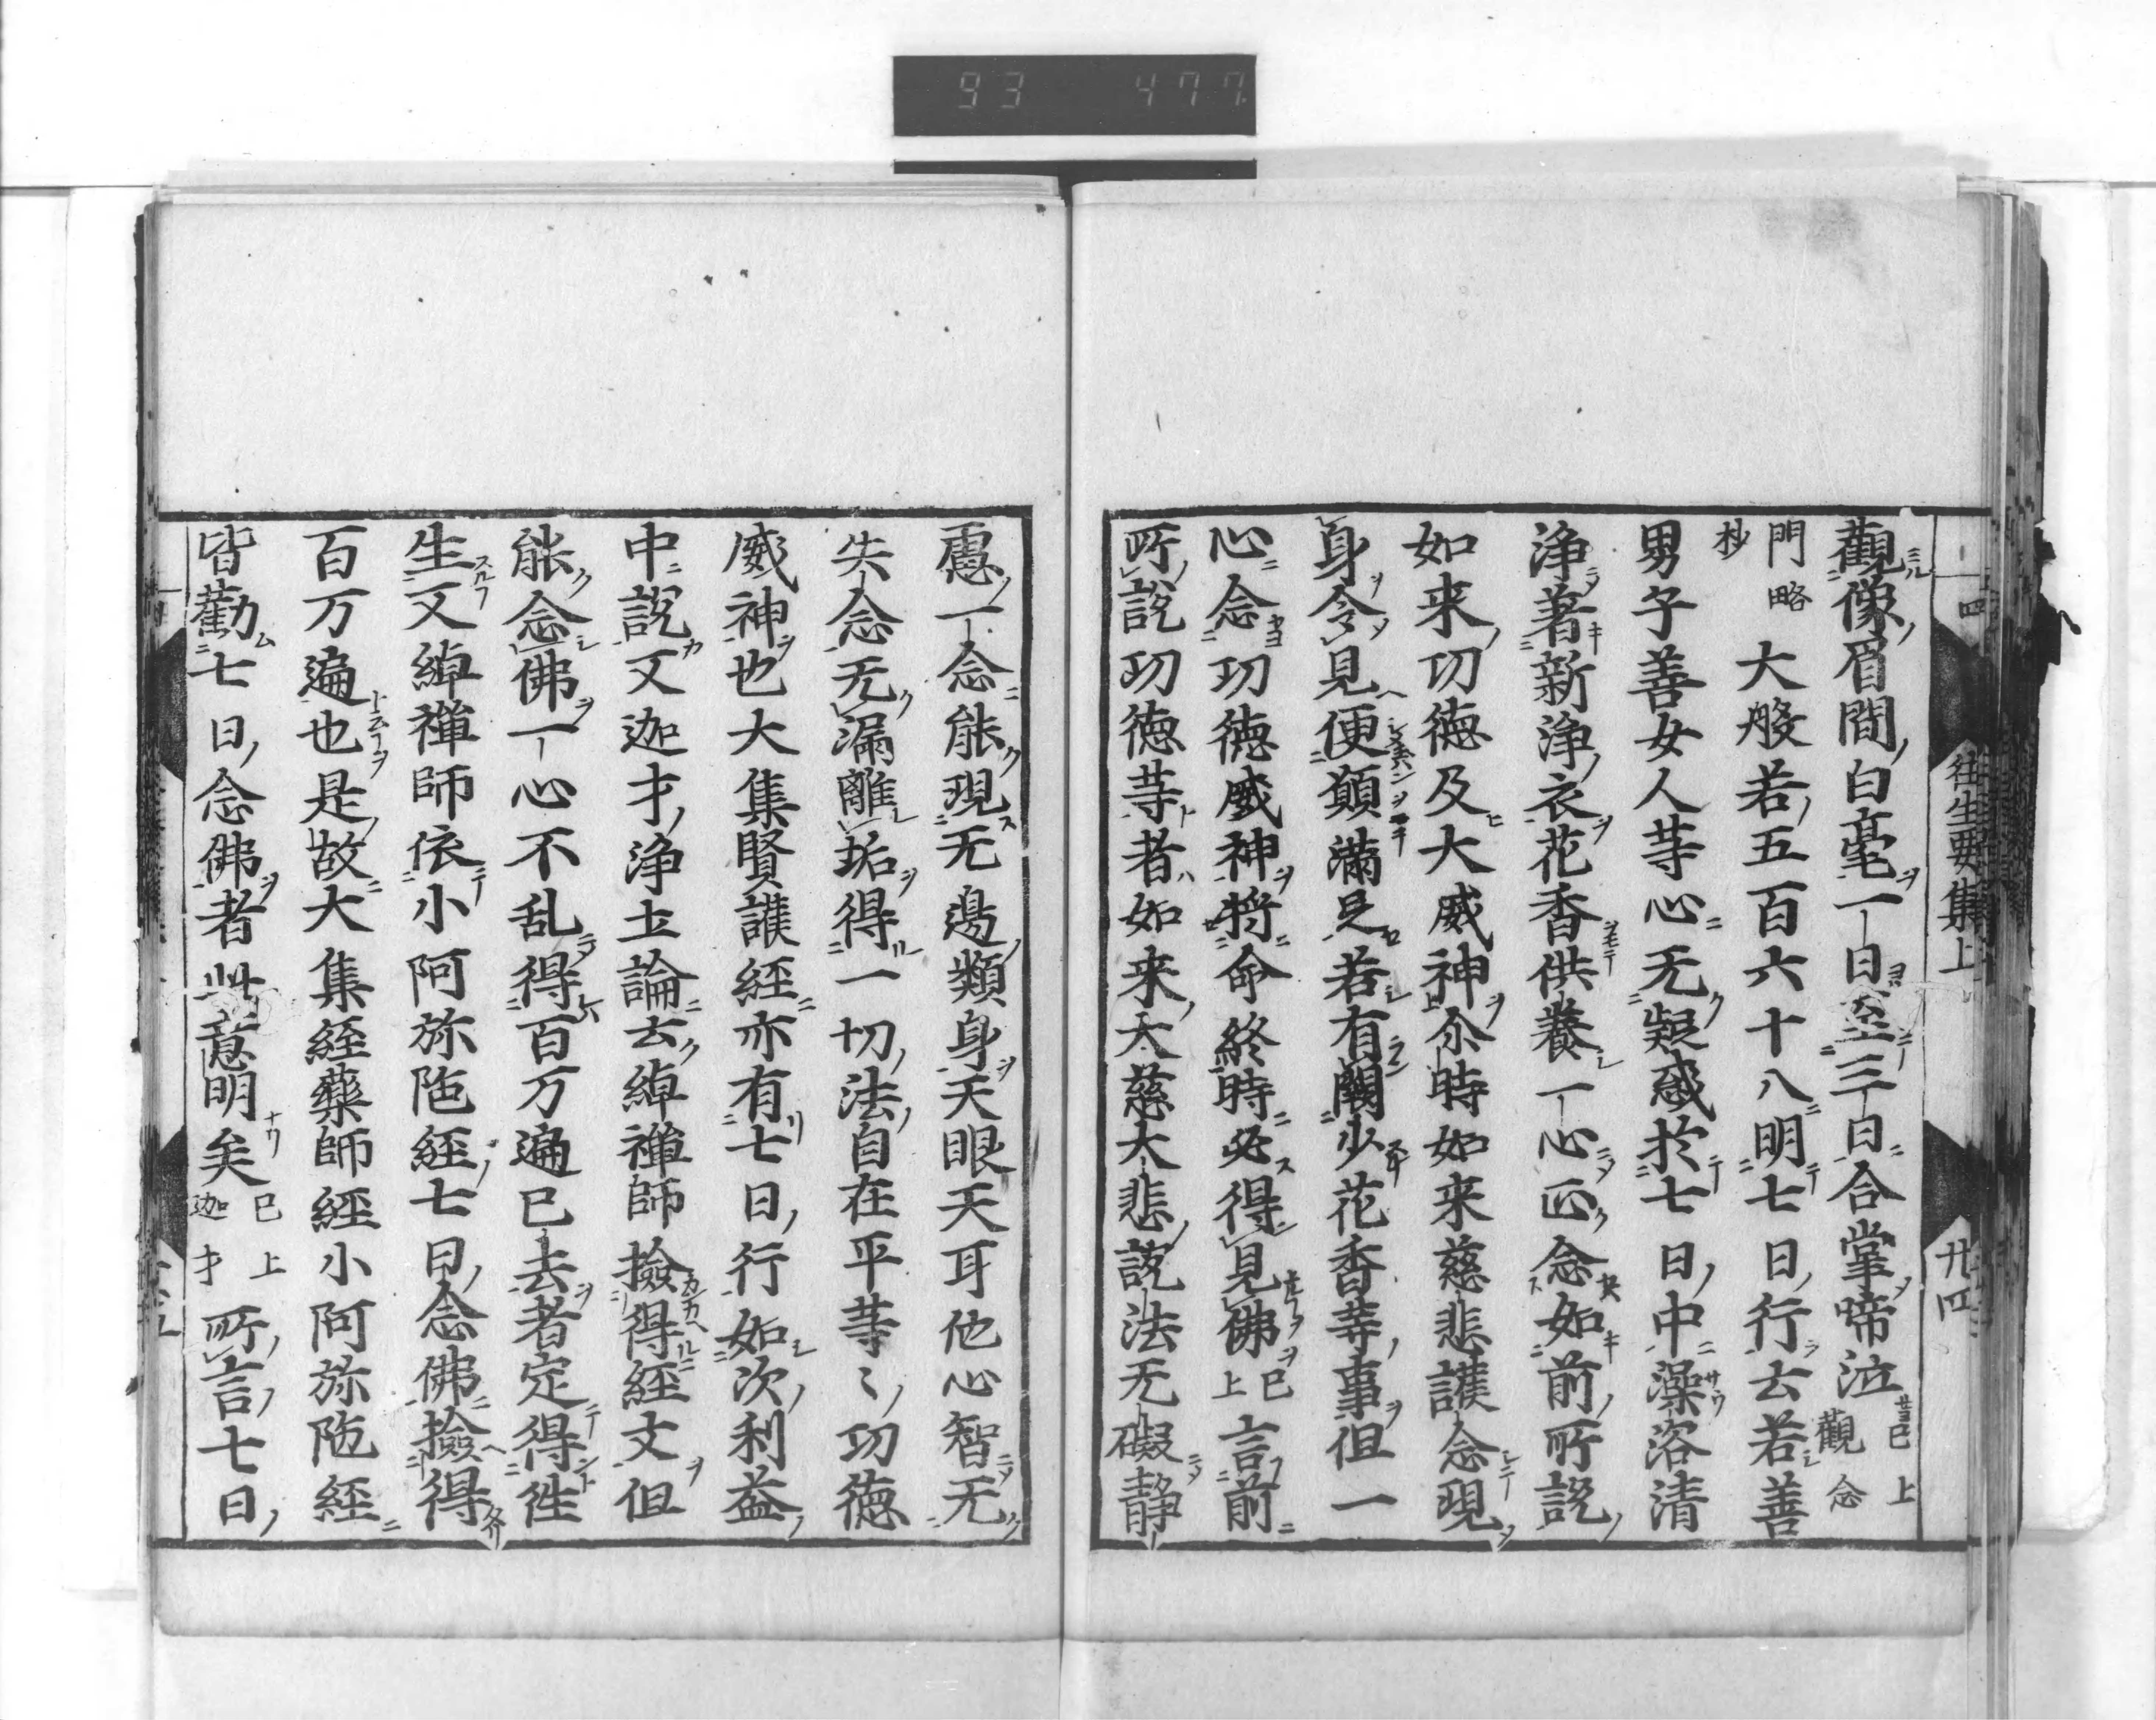 93 477
往生要集上 廿四
觀像眉間白毫一日至三日合掌啼泣已上觀念
門略抄大般若五百六十八明七日行云若善
男子善女人等心无疑惑於七日中澡浴清
淨著新淨衣花香供養一心正念如前所說
如来功德及大威神尒時如来慈悲護念現
身令見便願滿足若有闕少花香等事但一
心念功德威神將命終時必得見佛已上言前
所說功德等者如来大慈大悲說法无礙靜
慮一念能現无邊類身天眼天耳他心智无
失念无漏離垢得一切法自在平等〻功德
威神也大集賢護経亦有七日行如次利益
中說又迦才淨土論云綽禪師撿得経文但
能念佛一心不乱得百万遍已去者定得徃
生又綽禪師依小阿弥陁経七日念佛撿得
百万遍也是故大集経藥師経小阿弥陁経
皆勸七日念佛者此意明矣已上迦才所言七日